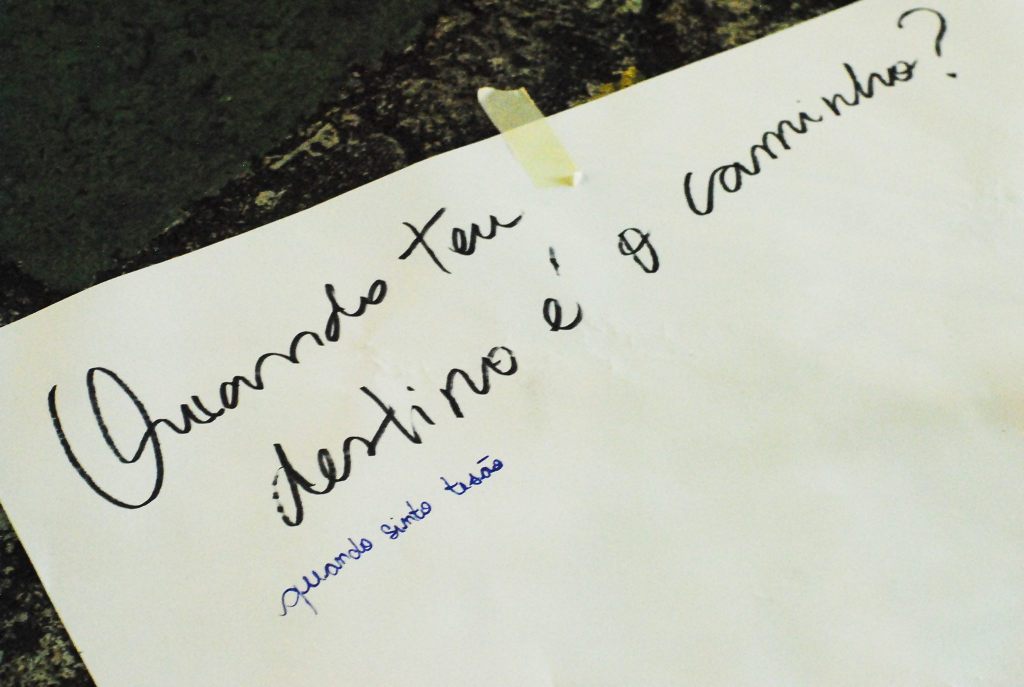 Quando teu
destino é o caminho?
quando sinto tesão